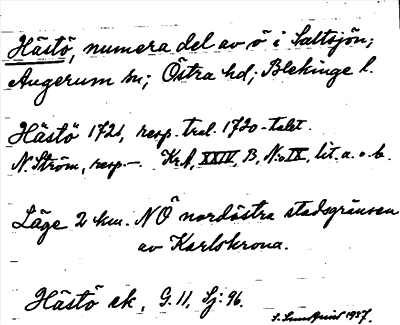 Hästö, numera del av ö i Saltsjön;
Augerum sn; Östra hd; Blekinge l.
Hästö 1721, resp. trol. 1720-talet.
N. Ström, resp.-. Kr.A, XXIV, B, N:o IX, lit. a. o. b.
Läge 2 km. NÖ nordöstra stadsgränsen
av Karlskrona.
Hästö ek, G. 11, Sj: 96.
1957.